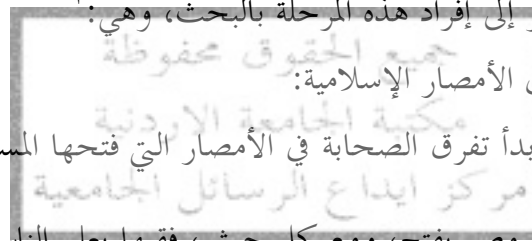 إلى إفراد هذه المرحلة بالبحث، وهي:
جميع الحقوق محفوظة
الأمصار الإسلامية:
مكتبة الجامعة الاردنية
بدأ تفرق الصحابة في الأمصار التي فتحها
مركز ايداع الرسائل الجامعية